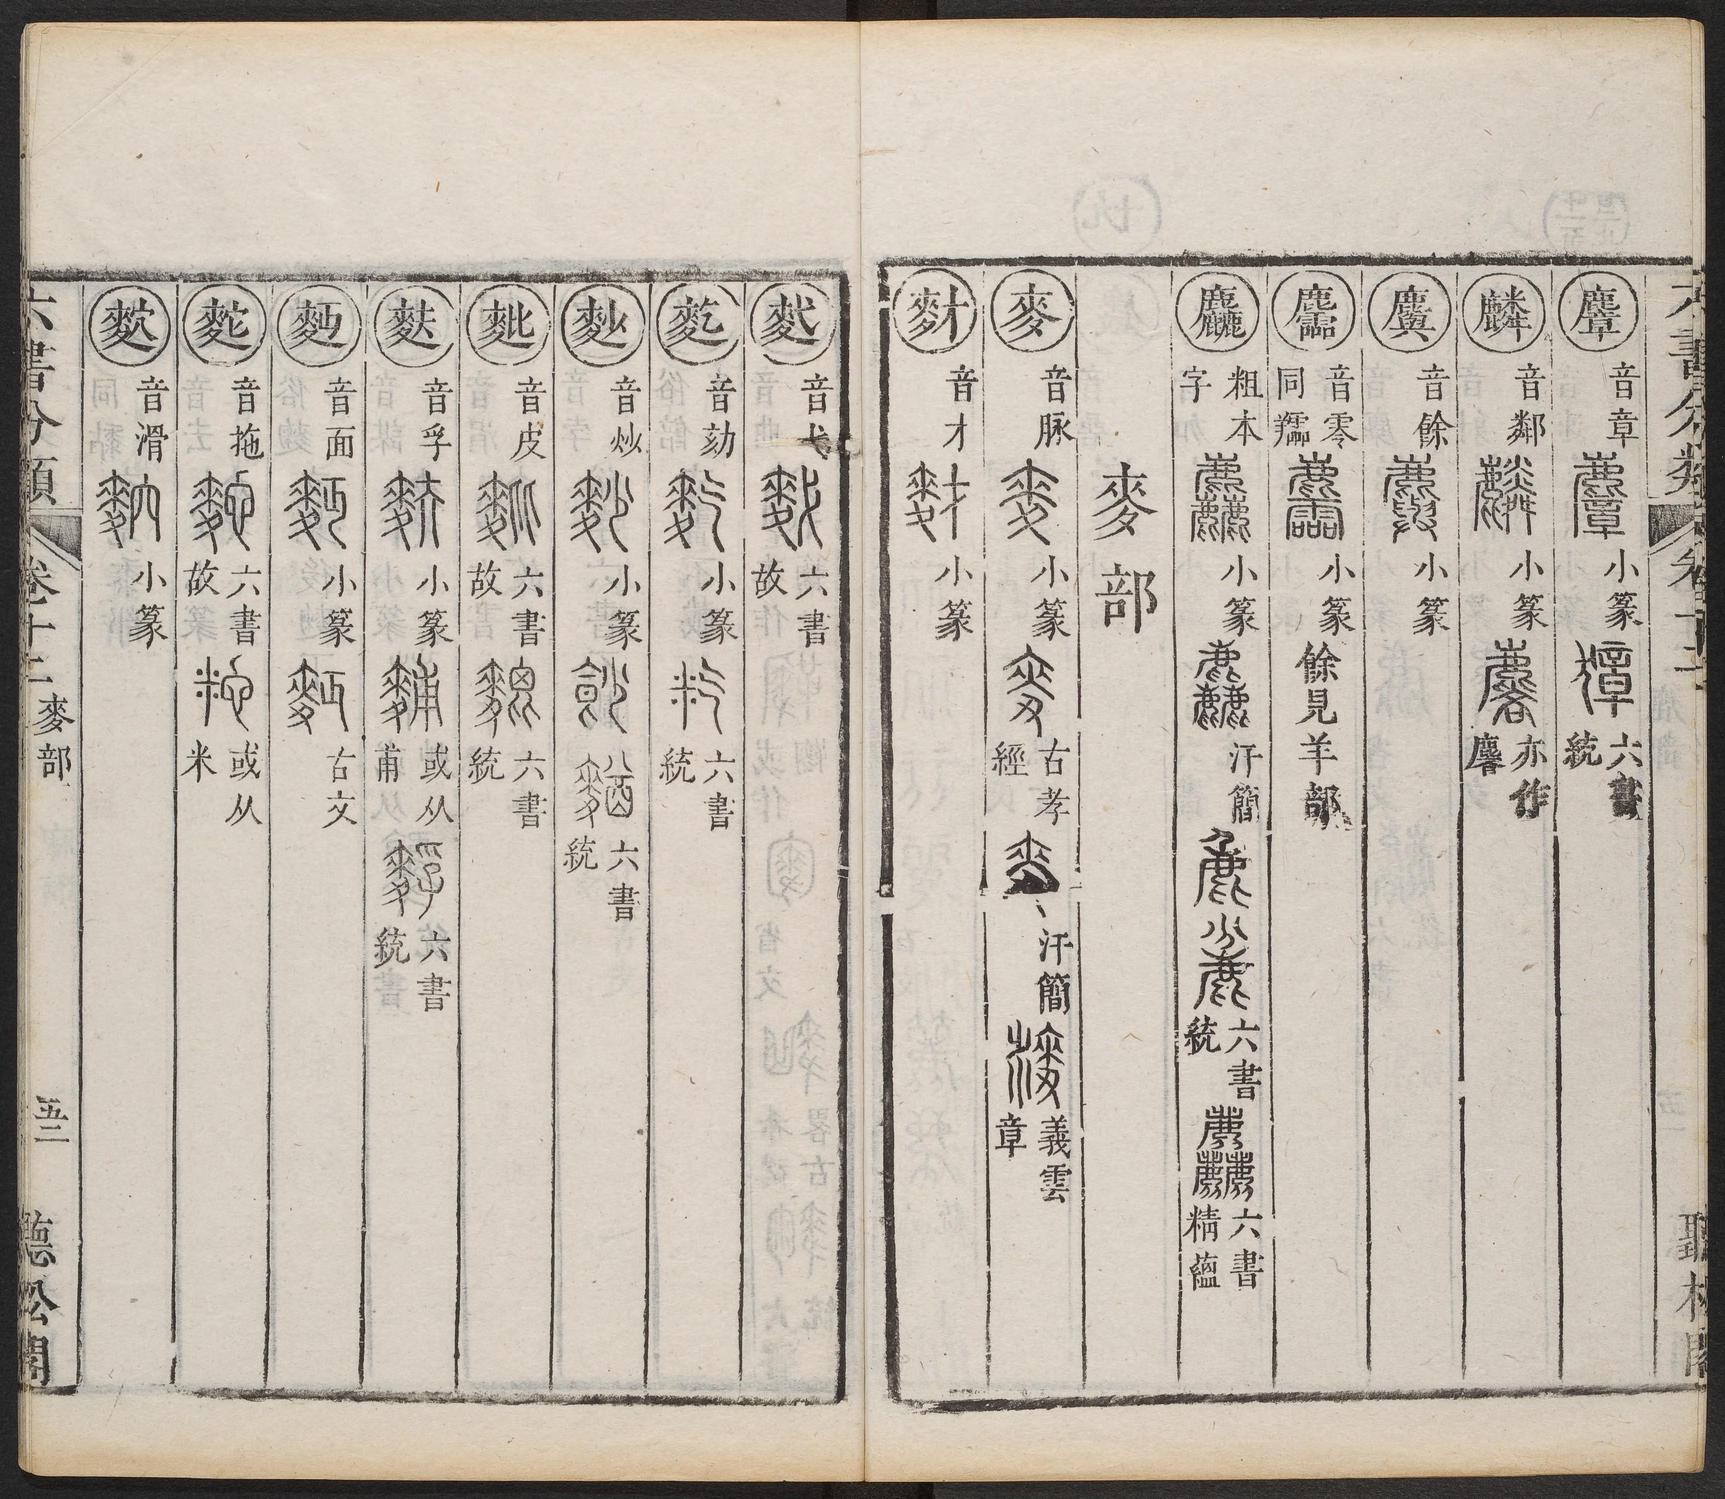 麞 音章 小篆 六書統
麟 音鄰 小篆 亦作麐
音餘 小篆
音零同羺 小篆 餘見羊部
麤 粗本字 小篆 汗簡 六書統 六書精蘊
麥部
麥 音脉 小篆 古孝經 汗簡 義雲章
音才 小篆
六書分類 卷十二 聽松閣
音弋 六書故
麧 音劾 小篆 六書統
麨 音炒 小篆 六書統
音皮 六書故 六書統
麩 音孚 小篆 或从甫 六書統
麪 音面 小篆 古文
音拖 六書故 或从米
音滑 小篆
六書分類 卷十二 麥部 五二 聽松閣